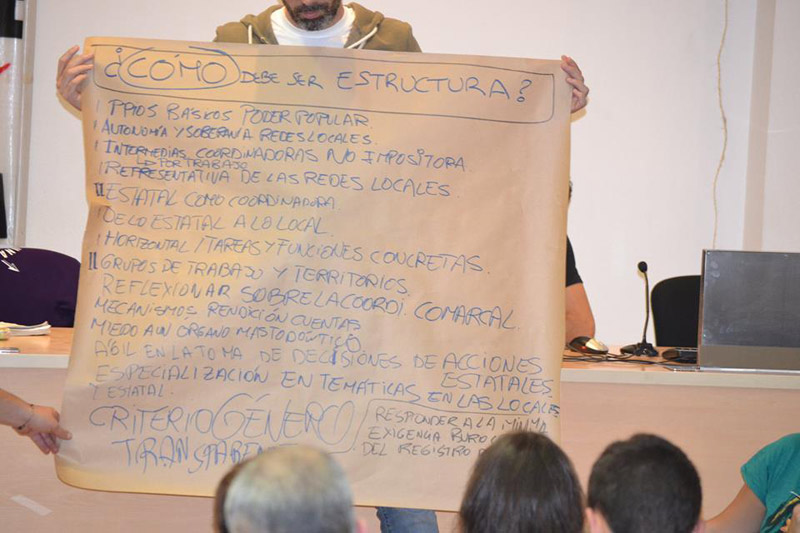 ¿CÓMO DEBE SER ESTRUCTURA?
| PPIOS BÁSICOS PODER POPULAR.
| AUTONOMÍA Y SOBERANIA REDES LOCALES.
| INTERMEDIAS, COORDINADORAS NO IMPOSITORA.
↳ POR TRABAJO
| REPRESENTATIVA DE LAS REDES LOCALES.
|| ESTATAL COMO COORDINADORA
| DE LO ESTATAL A LO LOCAL.
| HORIZONTAL / TAREAS Y FUNCIONES CONCRETAS.
|| GRUPOS DE TRABAJO Y TERRITORIOS.
REFLEXIONAR SOBRE LA COORDI. COMARCAL.
MECANISMOS RENDICIÓN CUENTAS
MIEDO A UN ORGANO MASTODÓNTICO
AGIL EN LA TOMA DE DECISIONES DE ACCIONES
ESTATALES.
ESPECIALIZACIÓN EN TEMÁTICAS EN LAS LOCALES
Y ESTATAL.
CRITERIO GÉNERO
RESPONDER A LA MÍNIMA
EXIGENCIA
DEL REGISTRO